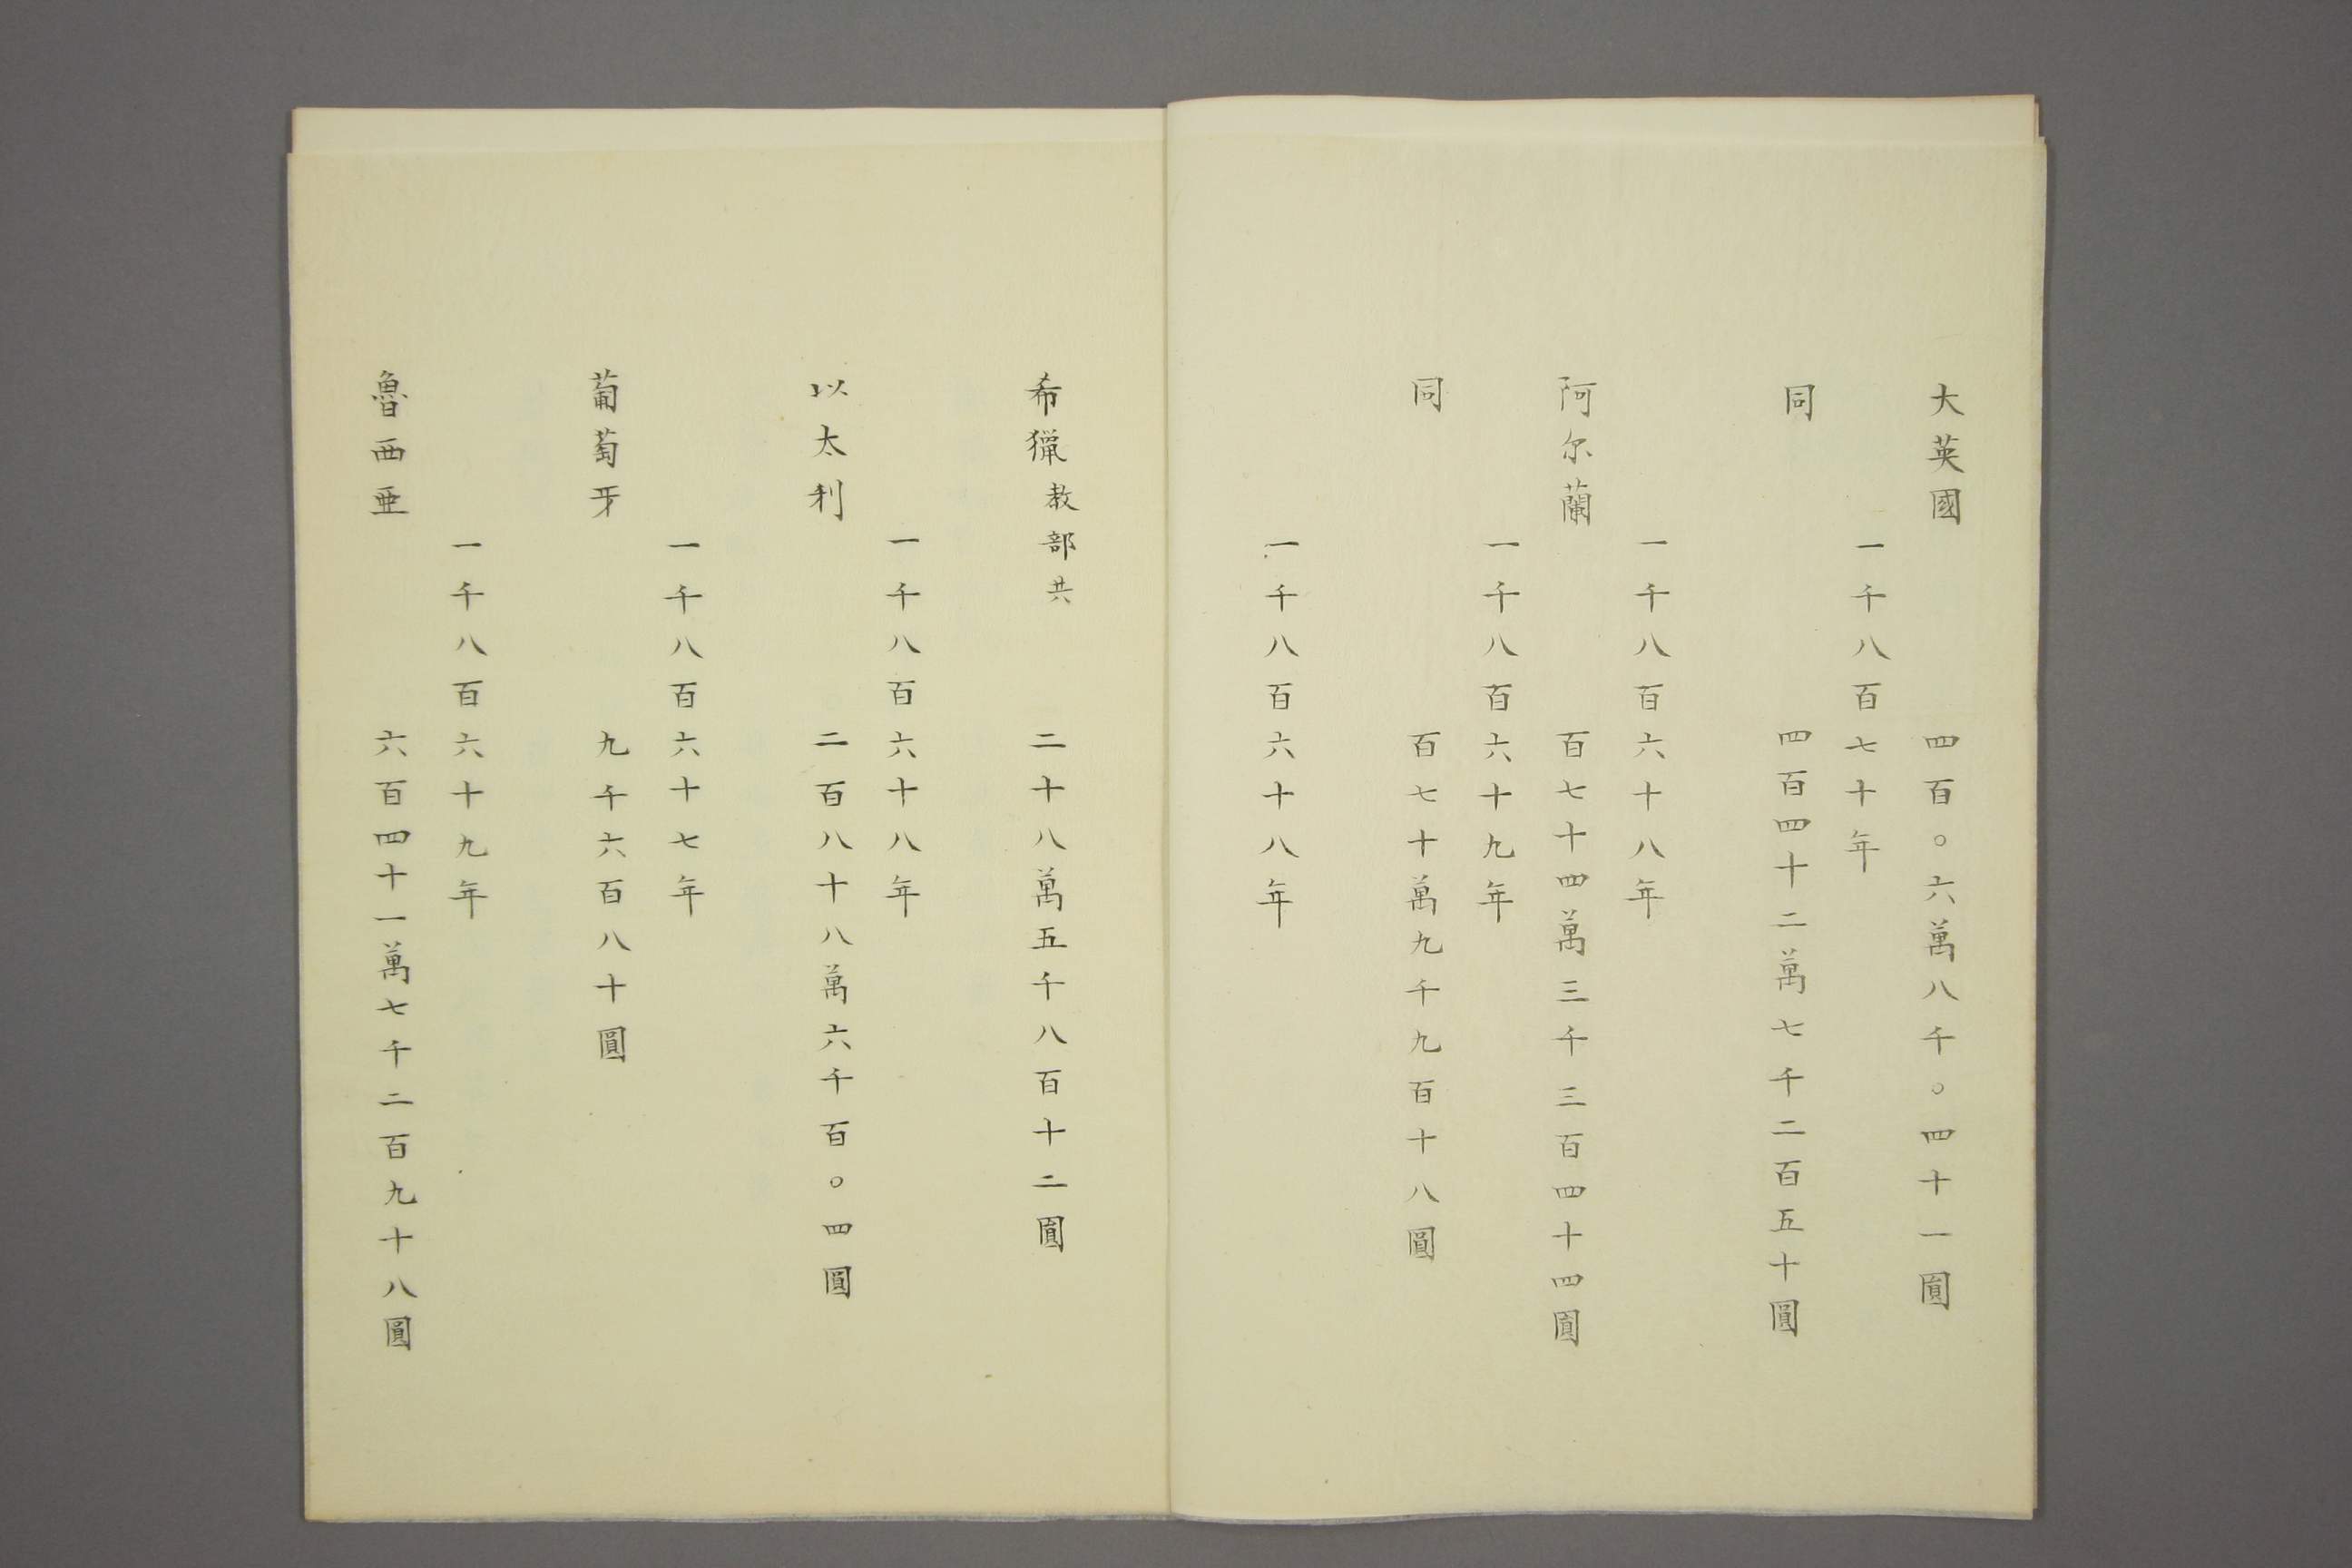 大英國　四百〇六萬八千〇四十一圓
一千八百七十年
同　四百四十二萬七千二百五十圓
一千八百六十八年
阿尓蘭　百七十四萬三千三百四十四圓
一千八百六十九年
同　百七十萬九千九百十八圓
一千八百六十八年
希獵教部共　二十八萬五千八百十二圓
一千八百六十八年
以太利　二百八十八萬六千百〇四圓
一千八百六十七年
葡萄牙　九千六百八十圓
一千八百六十九年
魯西亜　六百四十一萬七千二百九十八圓